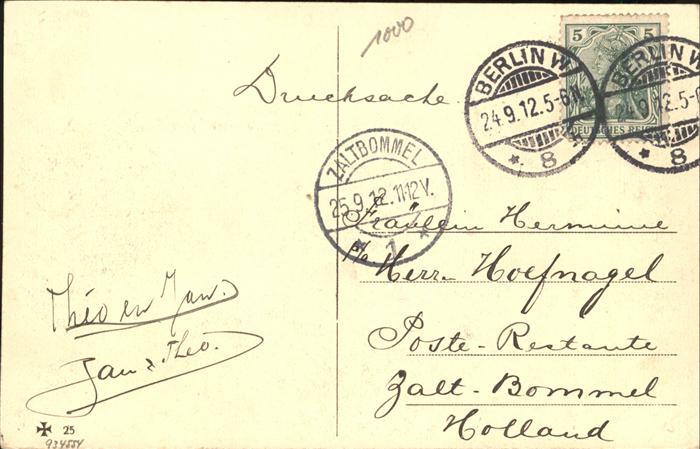 1000
Drucksache
5 5
DEUTSCHES REICH
BERLIN W.
24.9.12.5-6N.
* 8
BERLIN W.
24.9.12.5-6
* 8
ZALTBOMMEL
25.9.12.11-12V.
* 1 *
Fräulein Hermine
p/a Herrn Hoefnagel
Poste-Restante
Zalt-Bommel
Holland
Théo en Jan.
Jan & Theo.
25
934554